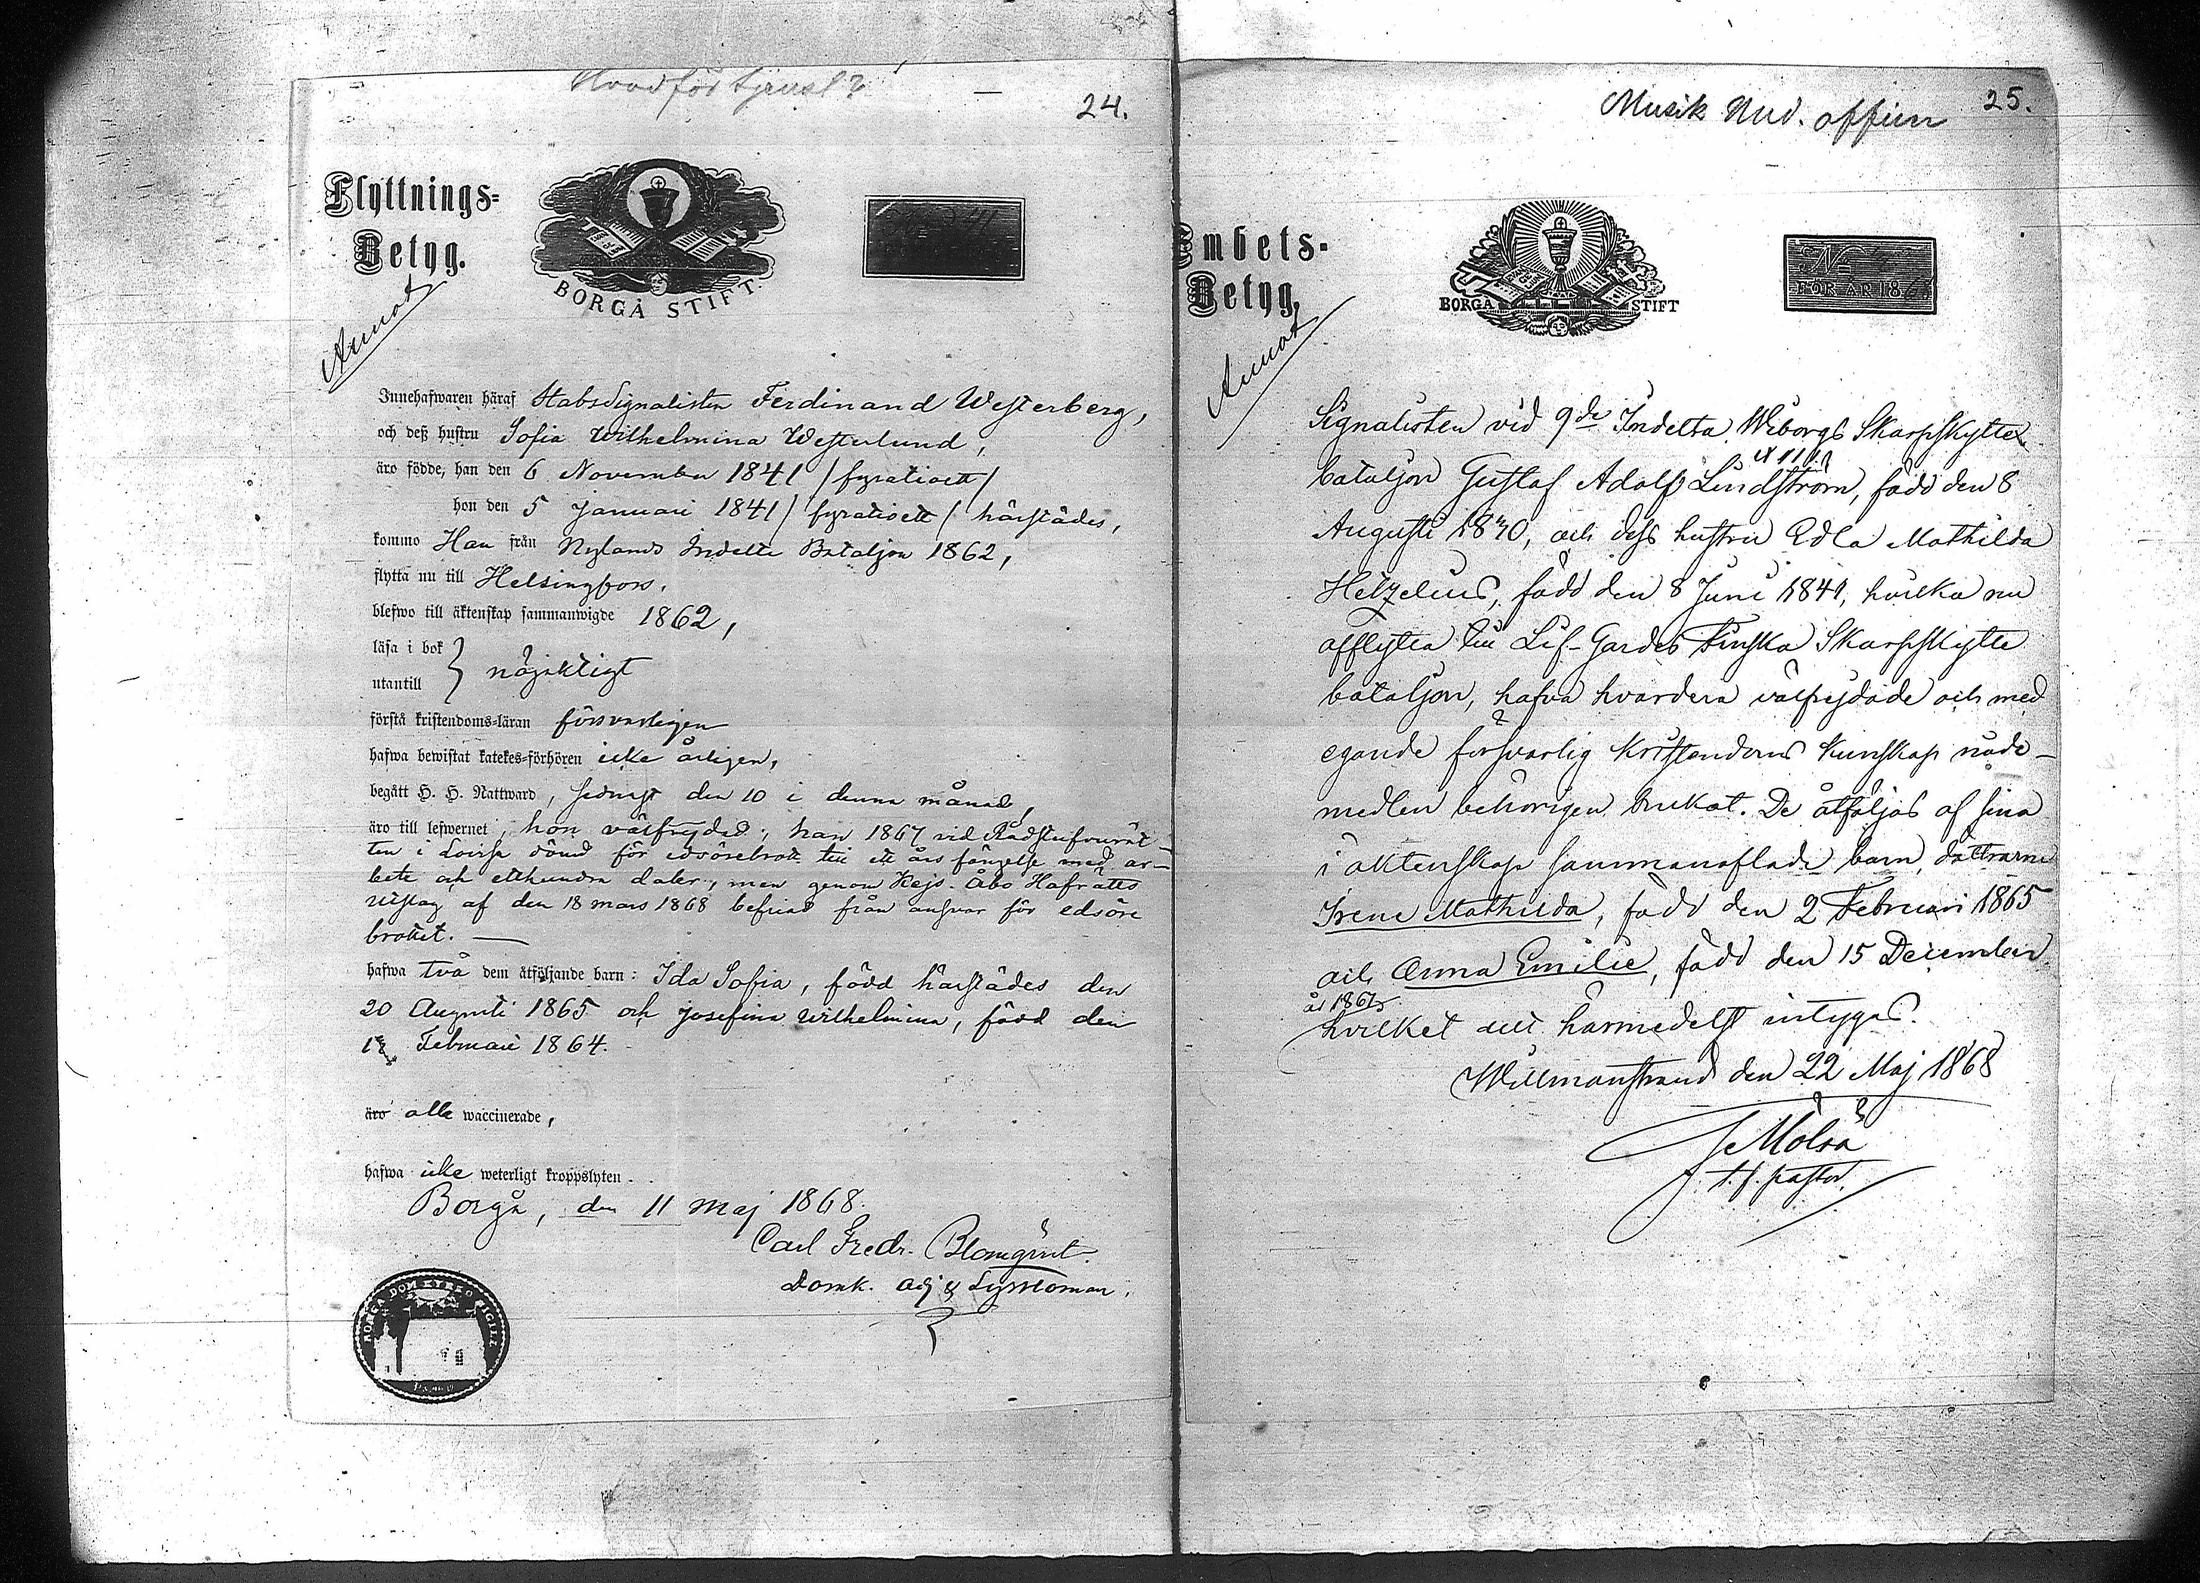 Hvad för tjenst?
24.
Flyttnings-
Betyg.
BORGÅ STIFT.
Annot
Innehafwaren häraf Stabssignalisten Ferdinand Westerberg,
och deß hustru Sofia Wilhelmina Westerlund,
äro födde, han den 6 November 1841 /fyratioett/
hon den 5 Januari 1841 /fyratioett/ härstädes,
kommo Han från Nylands Indelta Bataljon 1862,
flytta nu till Helsingfors,
blefwo till äktenskap sammanwigde 1862,
läsa i bok
utantill } nöjaktigt
förstå kristendoms-läran försvarligen
hafwa bewistat katekes-förhören icke årligen,
begått H. H. Nattward, sednast den 10 i denna månad,
äro till lefwernet, hon välfrejdad; han 1867 vid Rådstufvurät-
ten i Lovisa dömd för edsörebrott till ett års fängelse med ar-
bete och etthundra daler, men genom Kejs. Åbo Hofrätts
utslag af den 18 mars 1868 befriad från ansvar för edsöre
brottet.
hafwa två dem åtföljande barn: Ida Sofia, född härstädes den
20 Augusti 1865 och Josefina Wilhelmina, född den
Februari 1864.
äro alle waccinerade,
hafwa icke weterligt kroppslyten.
Borgå, den 11 maj 1868.
Carl Fredr. Blomqvist
Domk. adj & Sysseloman.
BORGÅ DOM KYRKO SIGILL
25.
Musik Und. officer
Embets-
Betyg.
BORGÅ STIFT
No
FÖR ÅR 186
Annot
Signalisten vid 9de Indelta Wiborgs Skarpskytte
bataljon Gustaf Adolf Lindström, född den 8
Augusti 1840, och dess hustru Edla Mathilda
Helzelius, född den 8 Juni 1841, hvilka nu
afflytta till Lif-Gardes Finska Skarpskytte
bataljon, hafva hvardera välfrejdade och med
egande försvarlig Kristendoms kunskap nåde-
medlen behörigen brukat. De åtföljas af sina
i äktenskap sammanaflade barn, döttrarne
Irene Mathilda, född den 2 Februari 1865
och Anna Emilie, född den 15 December
år 1867
hvilket allt härmedelst intygas.
Willmanstrand den 22 Maj 1868
Mölsä
t. f. pastor.